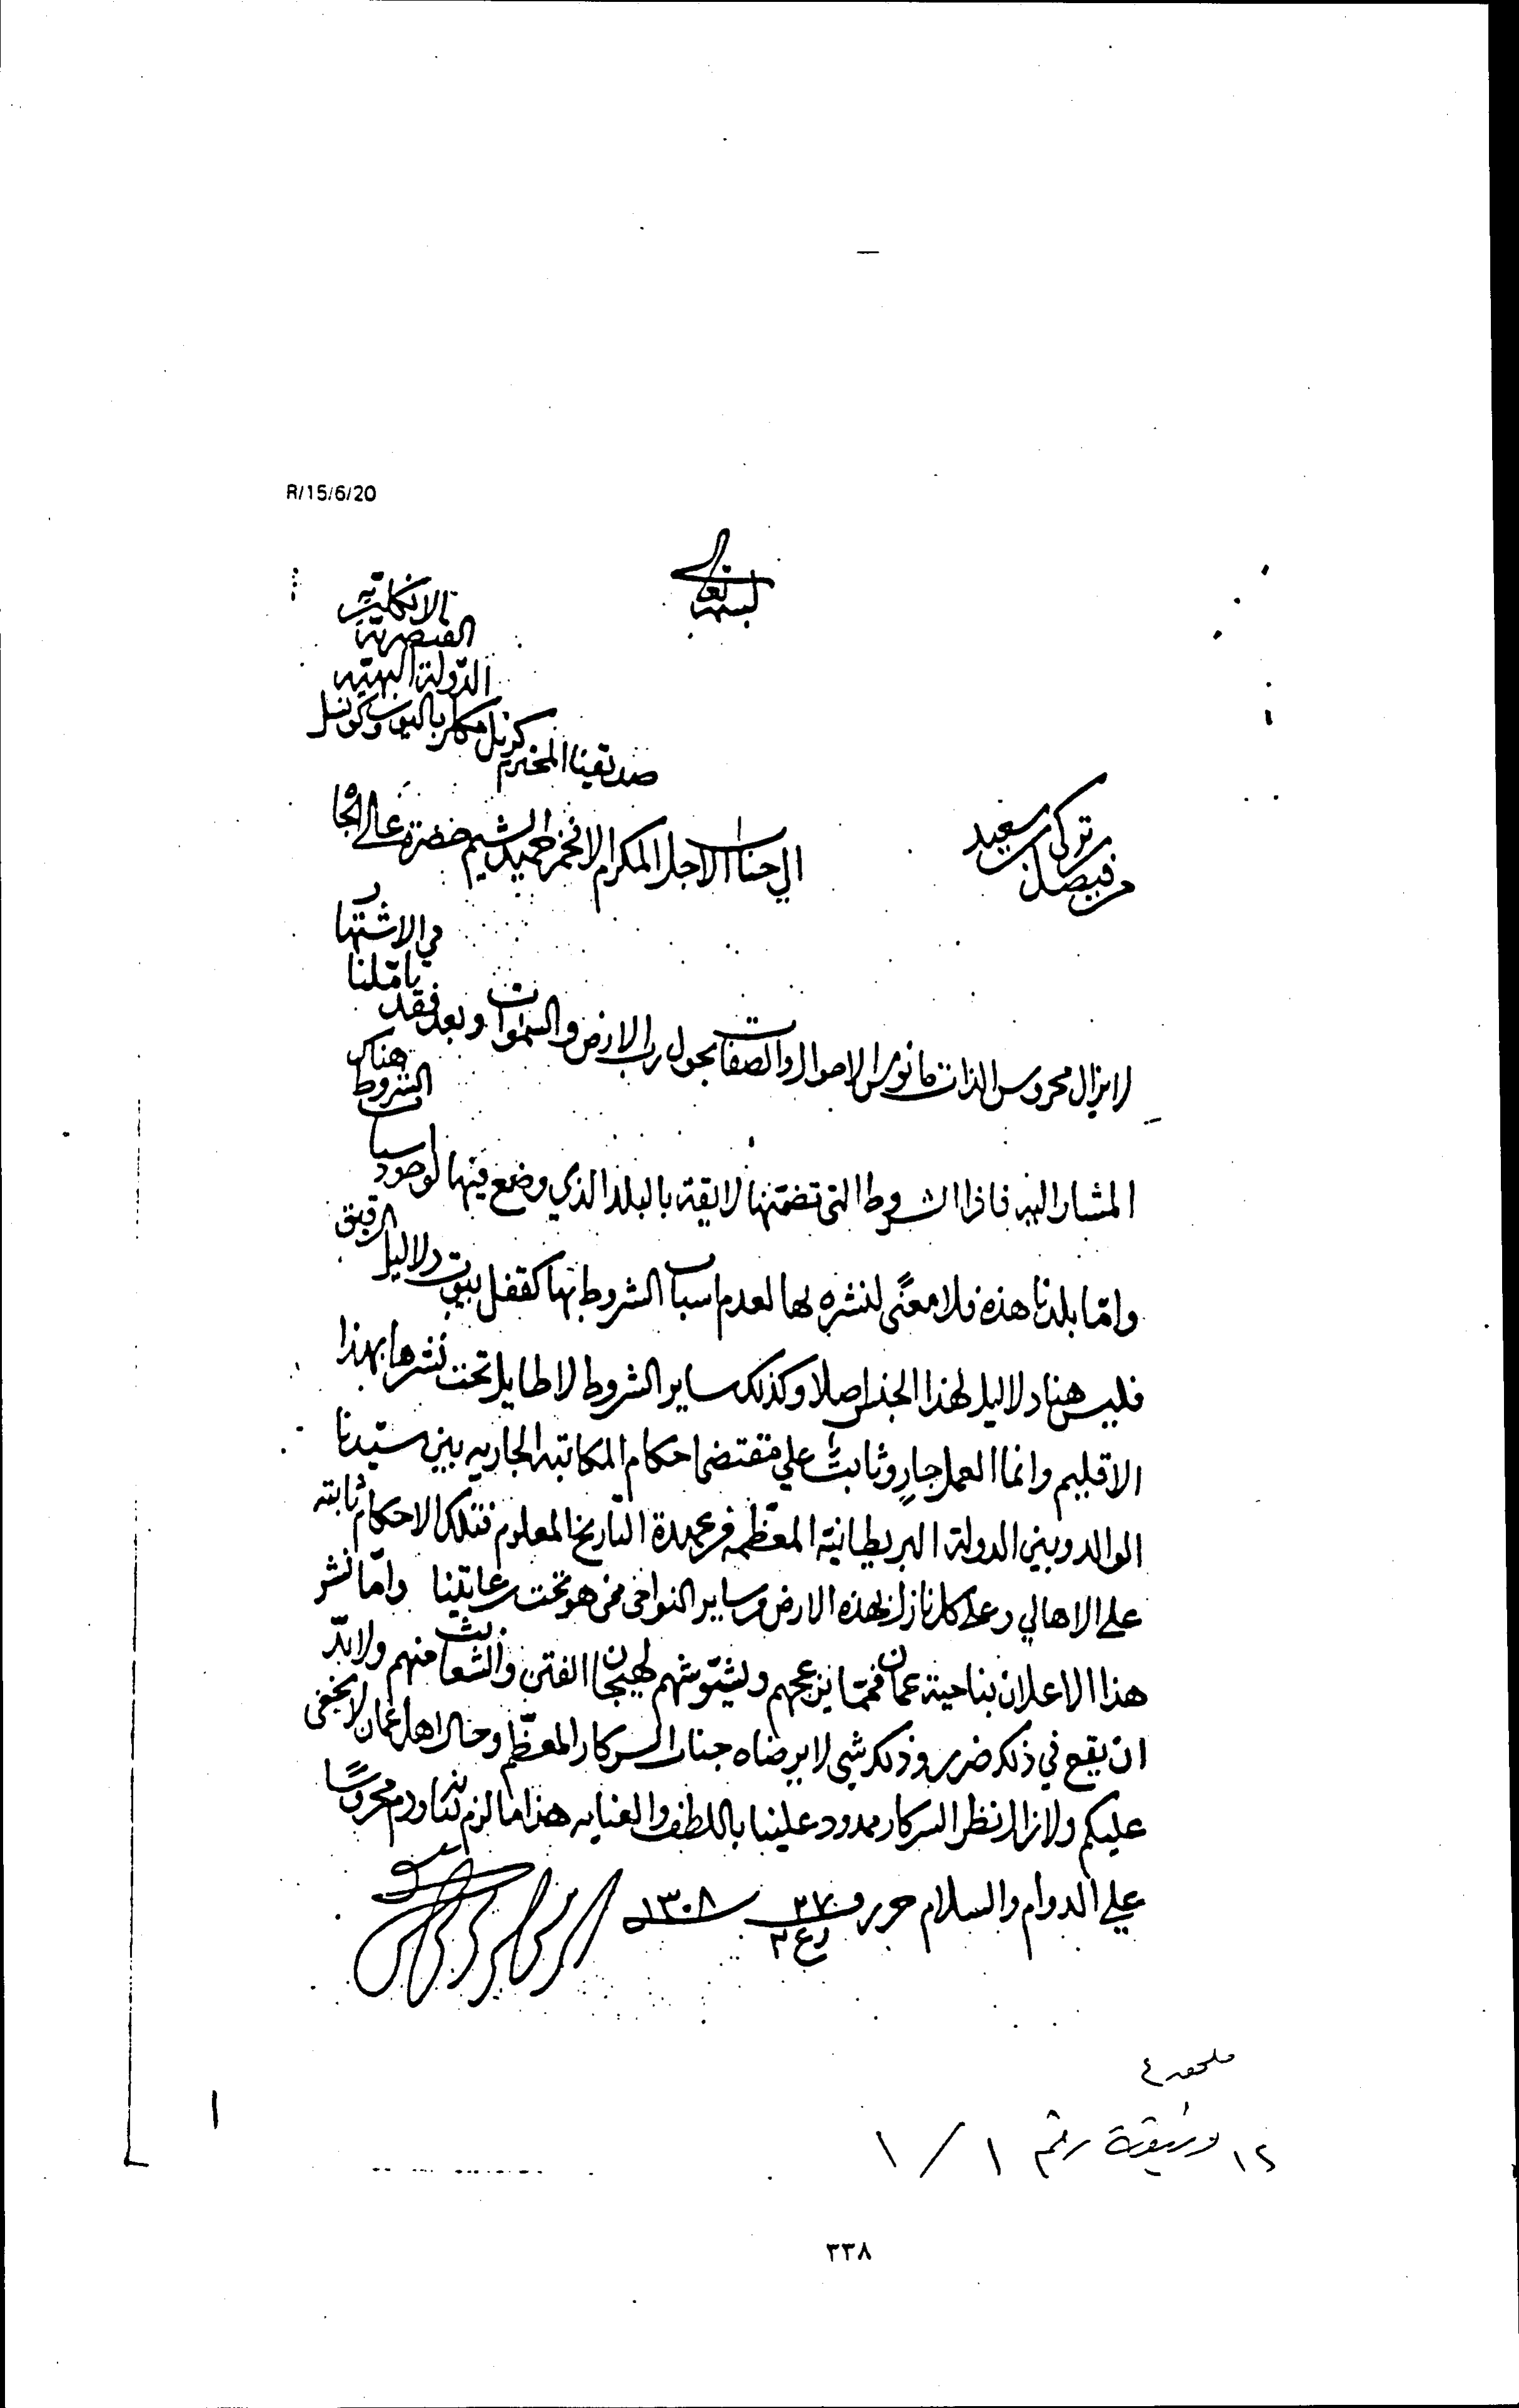 R/15/6/20
بسمه تعالى
من فيصل بن تركي بن سعيد
الي جناب الاجل المكرم الافخم حميد الشيم حضرة عالي الجاه
صديقنا المحترم كرنل باليوز وكونسل
الدولة البهية
القيصرية
الانكليزية
لا يزال محروس الذات مانوس الاحوال والصفات بحول رب الارض والسموات وبعد فقد
تاملنا
في الاشتهار
المشار اليه فاذا الشروط التي تضمنها لايقة بالبلد الذي وضع فيها لوجود اسباب
الشروط
هناك
واما بلدنا هذه فلا معنًى لنشره لها لعدم اسباب الشروط بها كقفل بيوت دلاليل الرقيق
فليس هنا دلاليل لهذا الجنس اصلا وكذلك ساير الشروط لا طايل تحت نشرها بهذا
الاقليم وانما العمل جارٍ وثابتٌ علي مقتضى احكام المكاتبة الجاريه بين سيّدنا
الوالد وبين الدولة البريطانية المعظّمه من مدة التاريخ المعلوم فتلك الاحكام ثابته
على الاهالي وعلى كل نازل بهذه الارض وساير النواحي ممن هو تحت رعايتنا واما نشر
هذا الاعلان بناحية عمان فممّا يزعجهم ويشوّشهم لهيجان الفتن والشعاثث منهم ولابدّ
ان يقع في ذلك ضرر وذلك شي لا يرضاه جناب السركار المعظّم وحال اهل عمان لا يخفى
عليكم ولازال نظر السركار ممدود علينا باللطف والعنايه هذا ما لزم بيانه ودم محروسًا
علي الدوام والسلام حرر في ٢٧ ربيع ٢ سنه ١٣٠٨
ملحق ٤
١٢ وثيقة رقم ١ / ١
٣٣٨